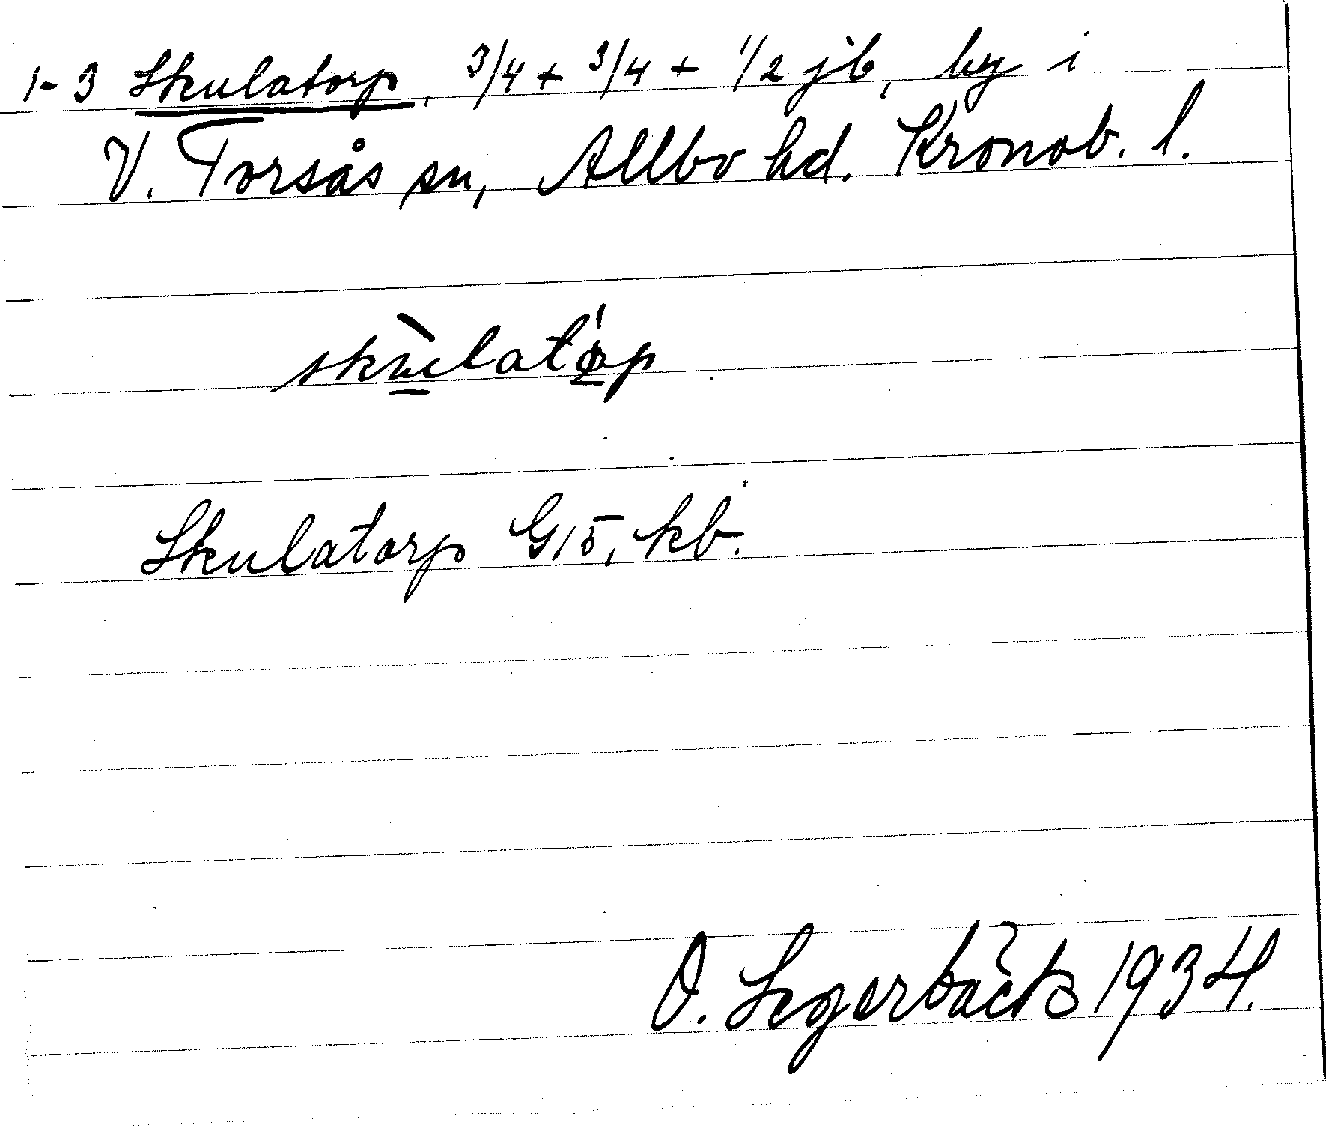 1-3 Skulatorp, 3/4 + 3/4 + 1/2 jb, by i
V. Torsås sn, Allbo hd. Kronob. l.
skùlató̱p
Skulatorp G15, kb.
O. Segerbäck 1934.